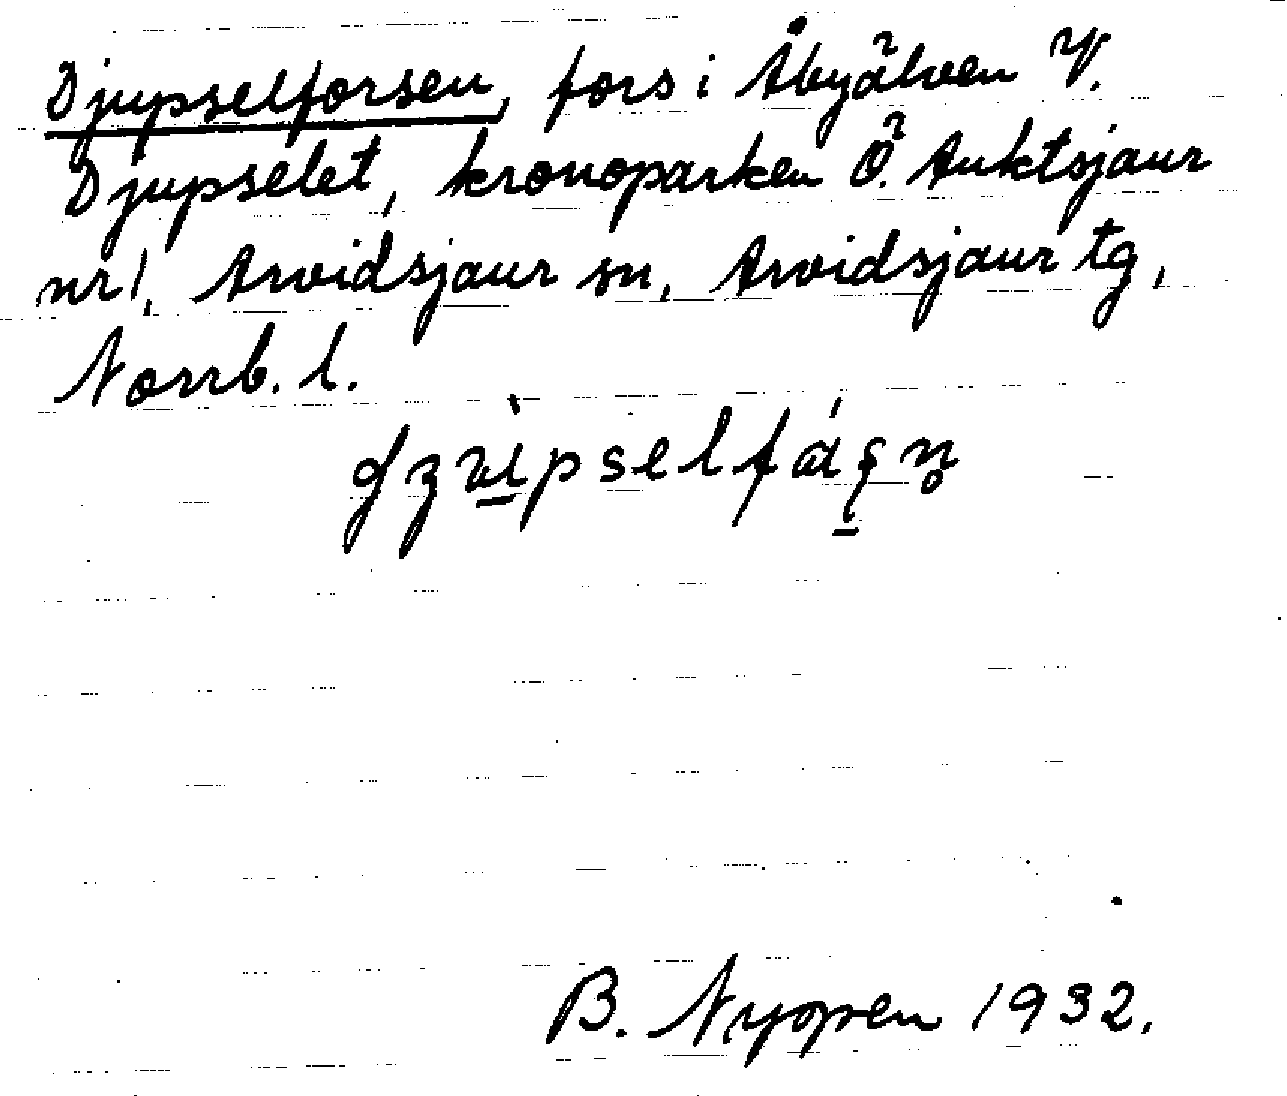 Djupselforsen, fors i Åbyälven V.
Djupselet, kronoparken Ö. Auktsjaur
nr 1, Arvidsjaur sn, Arvidsjaur tg,
Norrb. l.
B. Nyopen 1932.